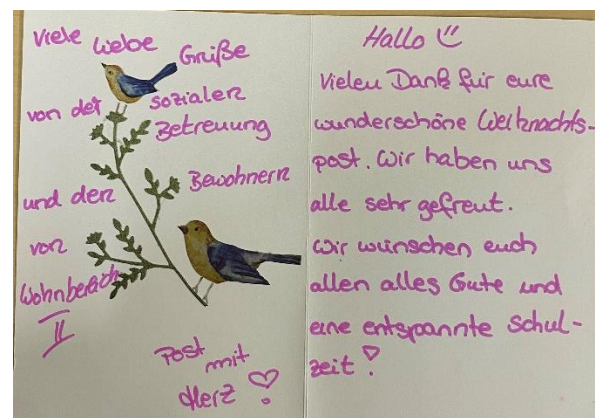 Viele liebe Grüße
von der sozialen
Betreuung
und den Bewohnern
von
Wohnbereich
II
Post
mit
Herz
Hallo
Vielen Dank für eure
wunderschöne Weihnachts-
post. Wir haben uns
alle sehr gefreut.
Wir wünschen euch
allen alles Gute und
eine entspannte Schul-
zeit!